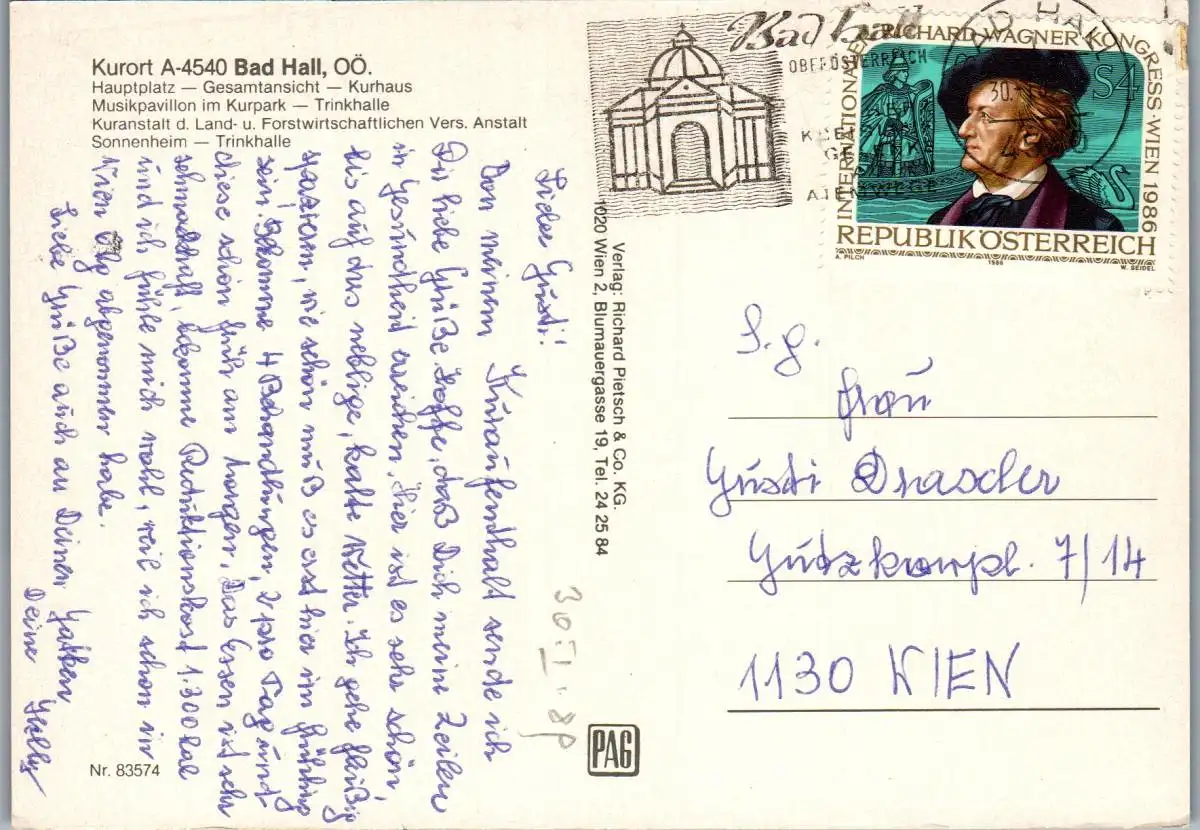 Kurort A-4540 Bad Hall, OÖ.
Hauptplatz — Gesamtansicht — Kurhaus
Musikpavillon im Kurpark — Trinkhalle
Kuranstalt d. Land- u. Forstwirtschaftlichen Vers. Anstalt
Sonnenheim — Trinkhalle
Liebe Gusti!
Von meinem Kuraufenthalt sende ich
Dir liebe Grüße. Hoffe, daß Dich meine Zeilen
in Gesundheit erreichen. Hier ist es sehr schön,
bis auf das neblige, kalte Wetter. Ich gehe fleißig
spazieren, wie schön muß es erst hier im Frühling
sein. Bekomme 4 Behandlungen, 2 pro Tag und
diese schon früh am Morgen. Das Essen ist sehr
schmackhaft, bekomme Reduktionskost 1.300 kal
und ich fühle mich wohl, weil ich schon in
Wien kg abgenommen habe.
Liebe Grüße auch an Deinen Gatten
Deine Helly
Nr. 83574
Verlag: Richard Pietsch & Co. KG.
1020 Wien 2, Blumauergasse 19, Tel. 24 25 84
PAG
Bad Hall
OBERÖSTERREICH
BAD HALL
INTERNATIONALER RICHARD-WAGNER-KONGRESS-WIEN 1986
S4
REPUBLIK ÖSTERREICH
A. PILCH 1986 W. SEIDEL
S. g.
Frau
Gusti Drascler
Gutzkowpl. 7/14
1130 WIEN